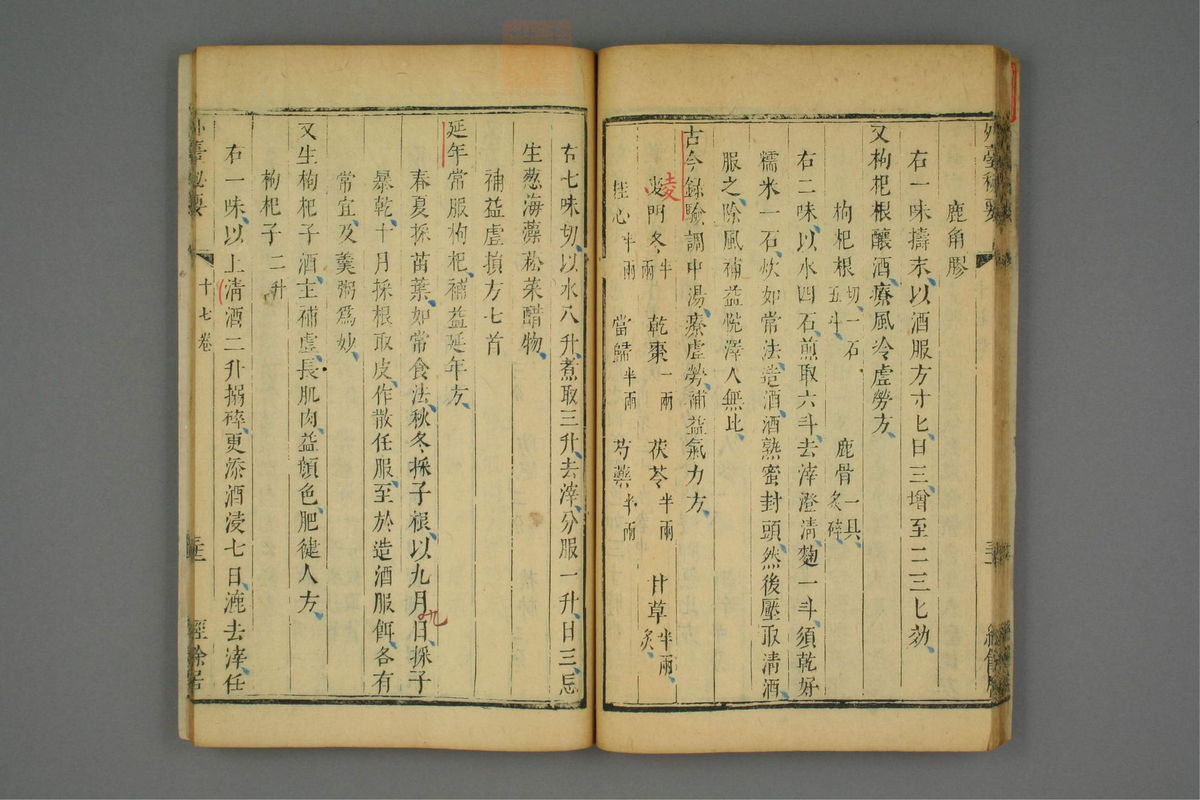 外臺秘要
鹿角膠
右一味擣末以酒服方寸匕日三增至二三匕効
又枸杞根釀酒療風冷虛勞方
枸杞根切一石五斗 鹿骨一具炙碎
右二味以水四石煎取六斗去滓澄清麴一斗須乾好
糯米一石炊如常法造酒酒熟蜜封頭然後壓取清酒
服之除風補益悅澤人無比
古今録驗調中湯療虛勞補益氣力方
麥門冬半兩 乾棗一兩 茯苓半兩 甘草半兩炙
凌
桂心半兩 當歸半兩 芍藥半兩
右七味切以水八升煮取三升去滓分服一升日三忌
生葱海藻菘菜醋物
補益虛損方七首
延年常服枸杞補益延年方
春夏採苗葉如常食法秋冬採子根以九月日採子
九
暴乾十月採根取皮作散任服至於造酒服餌各有
常宜及羹粥爲妙
又生枸杞子酒主補虛長肌肉益顏色肥健人方
枸杞子二升
右一味以上清酒二升搦碎更添酒浸七日漉去滓任
外臺秘要 十七卷 經餘居